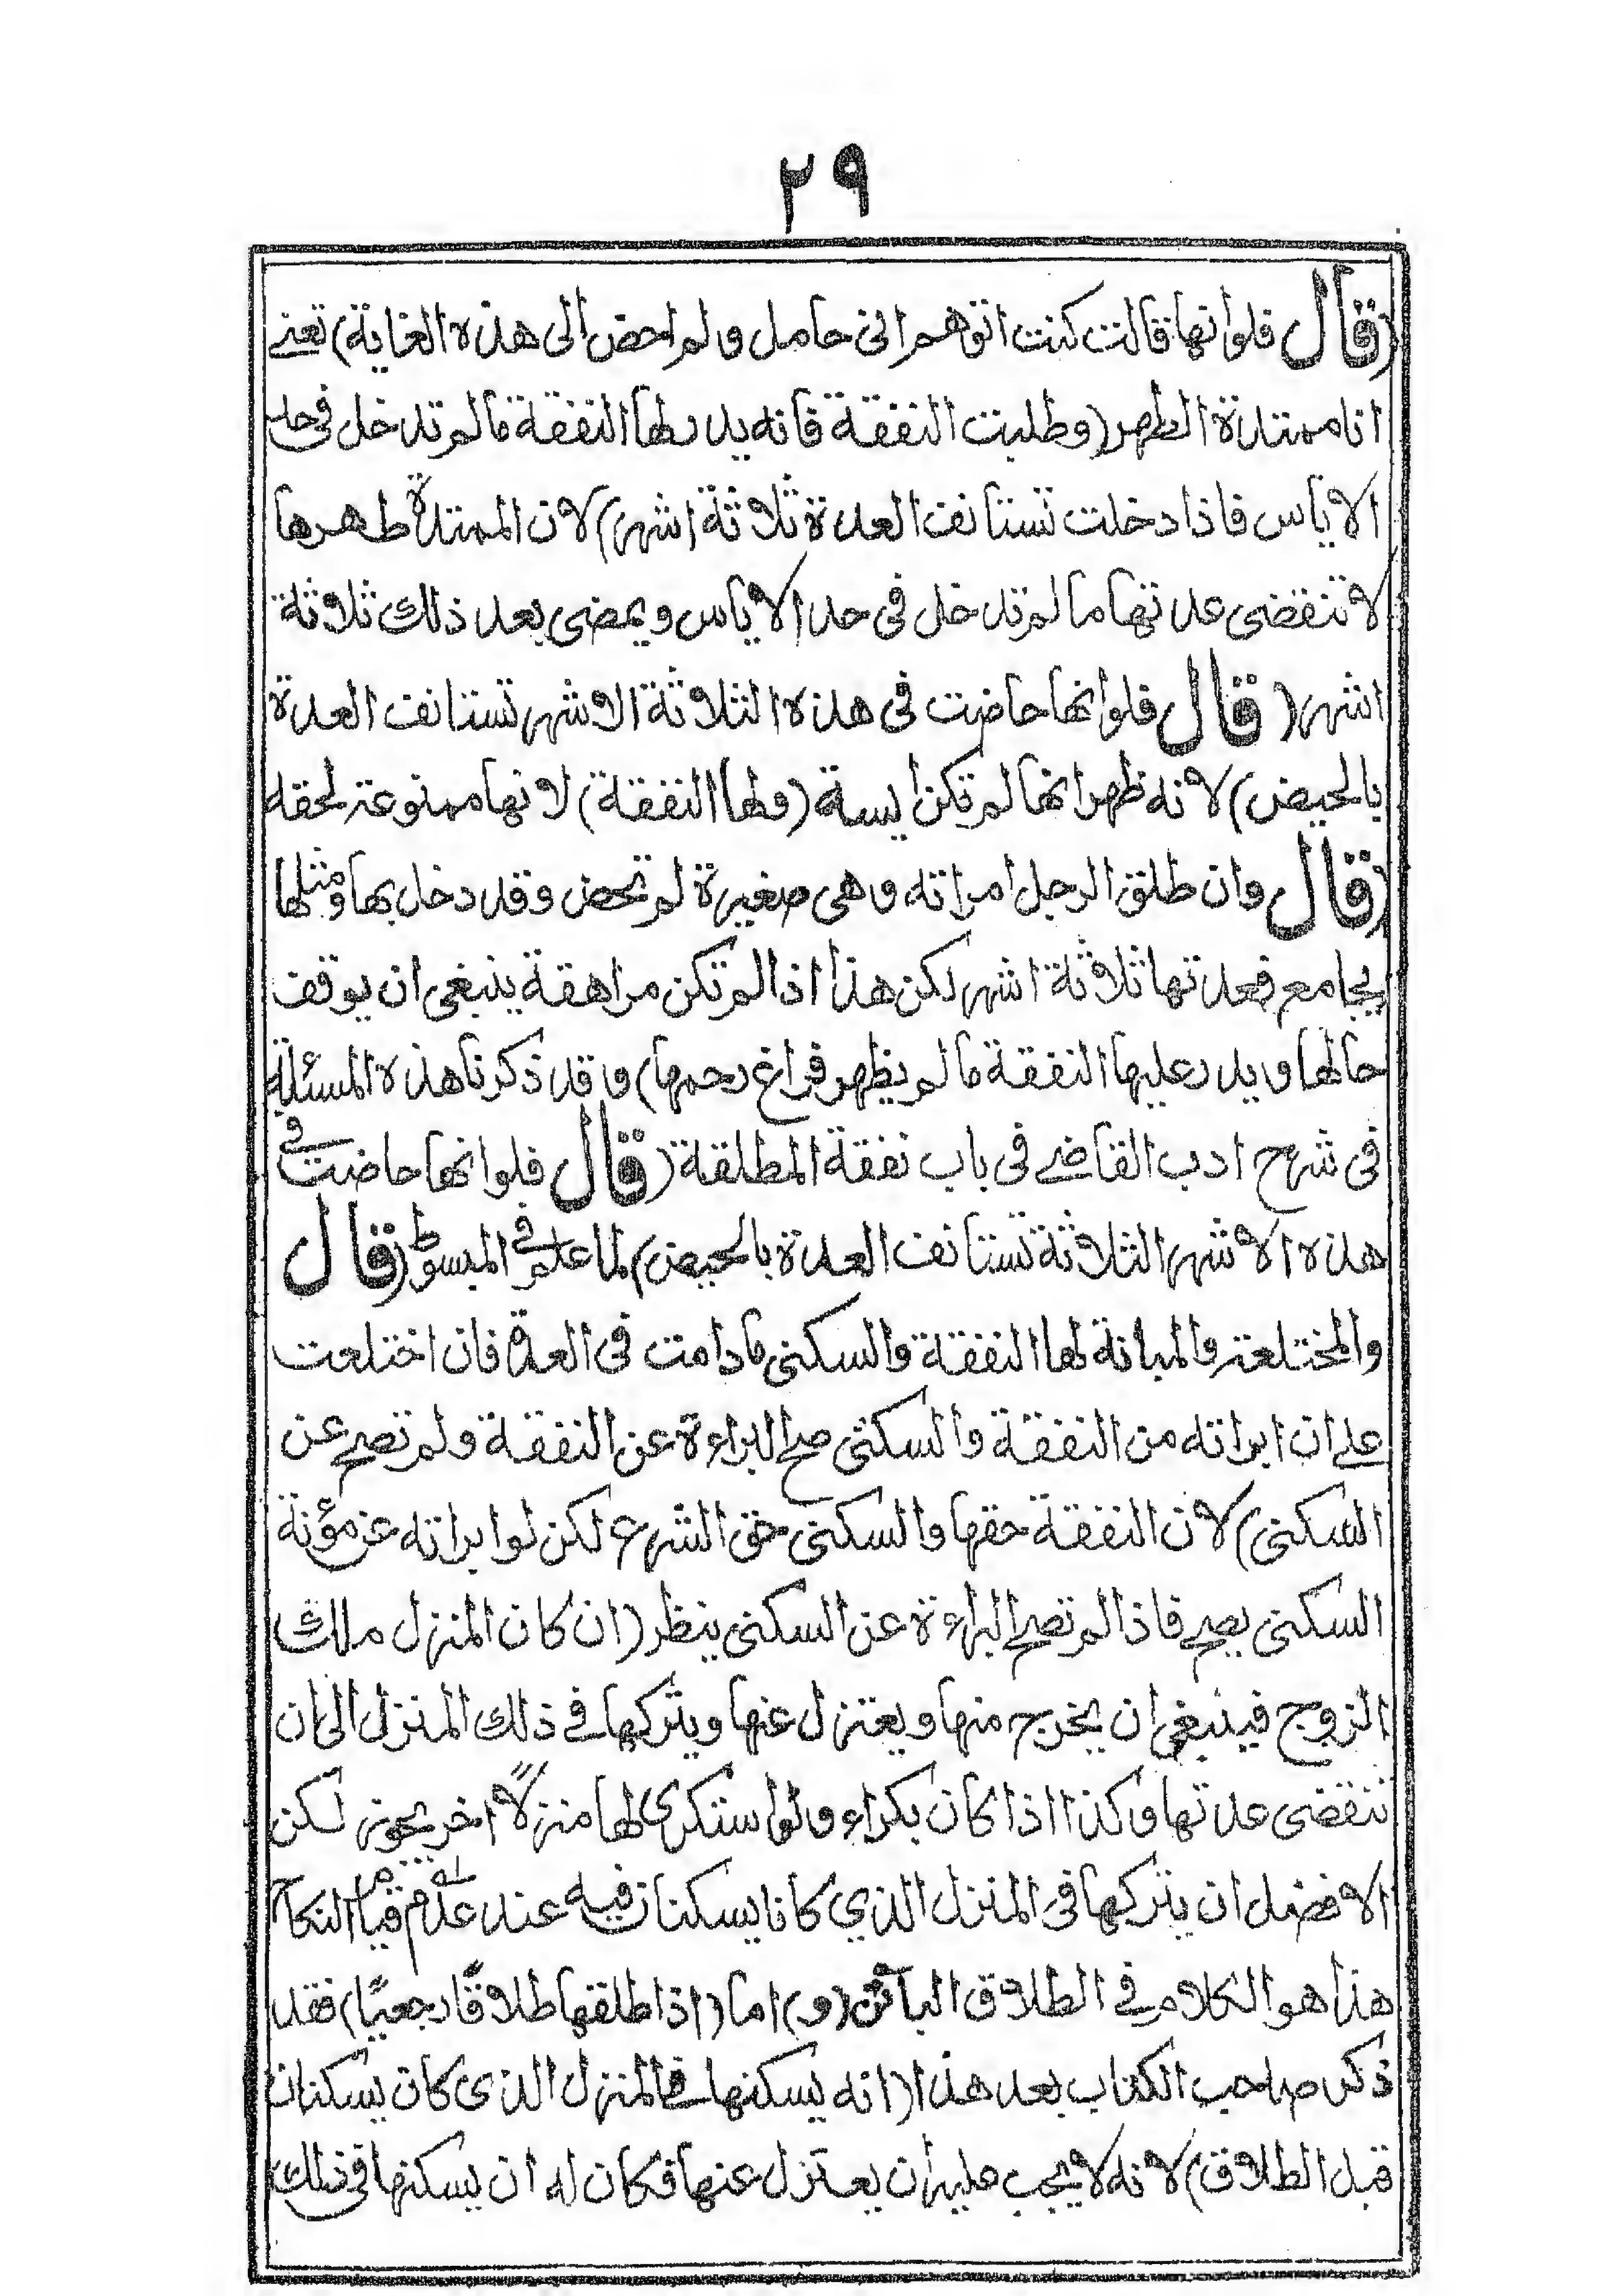 ٢٩
(قال فلو انها قالت كنت اتوهم انى حامل ولم احض الى هذه الغاية) تعنے
انا ممتدة الطهر (وطلبت النفقة فانه يدر لها النفقة ما لم تدخل فى حد
الاياس فاذا دخلت تستانف العدة ثلاثة اشهر) لان الممتدة طهرها
لا تنقضى عدتها ما لم تدخل فى حد الاياس ويمضى بعد ذلك ثلاثة
اشهر (قال فلو انها حاضت فى هذه الثلاثة الاشهر تستانف العدة
بالحيض) لانه ظهر انها لم تكن ايسة (ولها النفقة) لانها ممنوعة لحقه
(قال وان طلق الرجل امراته وهى صغيرة لم تحض وقد دخل بها ومثلها
يجامع فعدتها ثلاثة اشهر لكن هذا اذا لم تكن مراهقة ينبغى ان يوقف
حالها ويدر عليها النفقة ما لم يظهر فراغ رحمها) وقد ذكرنا هذه المسئلة
فى شرح ادب القاضے فى باب نفقة المطلقة (قال فلو انها حاضت فى
هذه الاشهر الثلاثة تستانف العدة بالحيض) لما علم فى المبسوط (قال
والمختلعة والمبانة لها النفقة والسكنى ما دامت فى العدة فان اختلعت
علے ان ابراته من النفقة والسكنى صح البراءة عن النفقة ولم تصح عن
السكنى) لان النفقة حقها والسكنى حق الشرع لكن لو ابراته عن مؤنة
السكنى يصح فاذا لم تصح البراءة عن السكنى ينظر (ان كان المنزل ملك
الزوج فينبغى ان يخرج منها ويعتزل عنها ويتركها فے ذلك المنزل الى ان
تنقضى عدتها وكذا اذا كان بكراء ولو استكرى لها منزلاً اخر يجوز لكن
الافضل ان يتركها فى المنزل الذي كانا يسكنان فيه عند قيام النكاح
هذا هو الكلام فے الطلاق البائن (و) اما (اذا طلقها طلاقًا رجعيًا) فقد
ذكر صاحب الكتاب بعد هذا (انه يسكنها فے المنزل الذى كان يسكنان
قبل الطلاق) لانه لا يجب عليه ان يعتزل عنها فكان له ان يسكنها فى ذلك